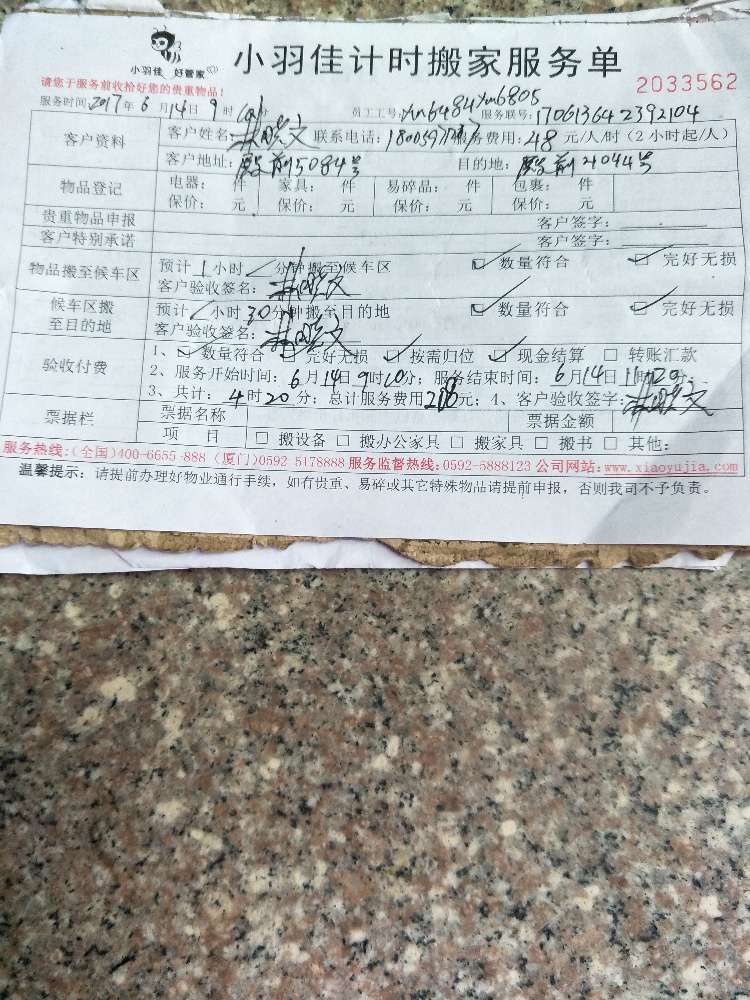 小羽佳 好管家
小羽佳计时搬家服务单
请您于服务前收拾好您的贵重物品！
2033562
服务时间：2017年6月14日9时 分 员工工号：xm6484 xm6805 服务联号：170613642392104
客户资料
客户姓名： 联系电话： 服务费用：48元/人/时（2小时起/人）
客户地址：殿前15084号 目的地：殿前21044号
物品登记
电器： 件 家具： 件 易碎品： 件 包裹： 件
保价： 元 保价： 元 保价： 元 保价： 元
贵重物品申报 客户签字：
客户特别承诺 客户签字：
物品搬至候车区
预计1小时 分钟搬至候车区 ☑数量符合 ☑完好无损
客户验收签名：
候车区搬至目的地
预计 小时30分钟搬至目的地 ☑数量符合 ☑完好无损
客户验收签名：
验收付费
1、☑数量符合 ☑完好无损 ☑按需归位 ☑现金结算 □转账汇款
2、服务开始时间：6月14日9时10分；服务结束时间：6月14日11时20分；
3、共计：4时20分；总计服务费用208元；4、客户验收签字：
票据栏
票据名称 票据金额
项 目 □搬设备 □搬办公家具 □搬家具 □搬书 □其他：
服务热线：(全国)400-6655-888 (厦门)0592-5178888 服务监督热线：0592-5888123 公司网站：www.xiaoyujia.com
温馨提示：请提前办理好物业通行手续，如有贵重、易碎或其它特殊物品请提前申报，否则我司不予负责。